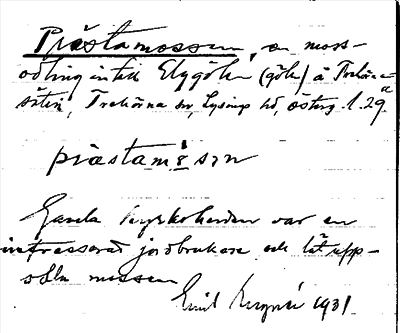 Prästamossen, en moss-
odling intill Elggölen (göle) å Trehörna-
säteri, Trehörna sn, Lysings hd, Österg. l. 29a
präst
Gamla kyrkoherden var en
intresserad jordbrukare och lät upp-
odla mossen
Emil 1931